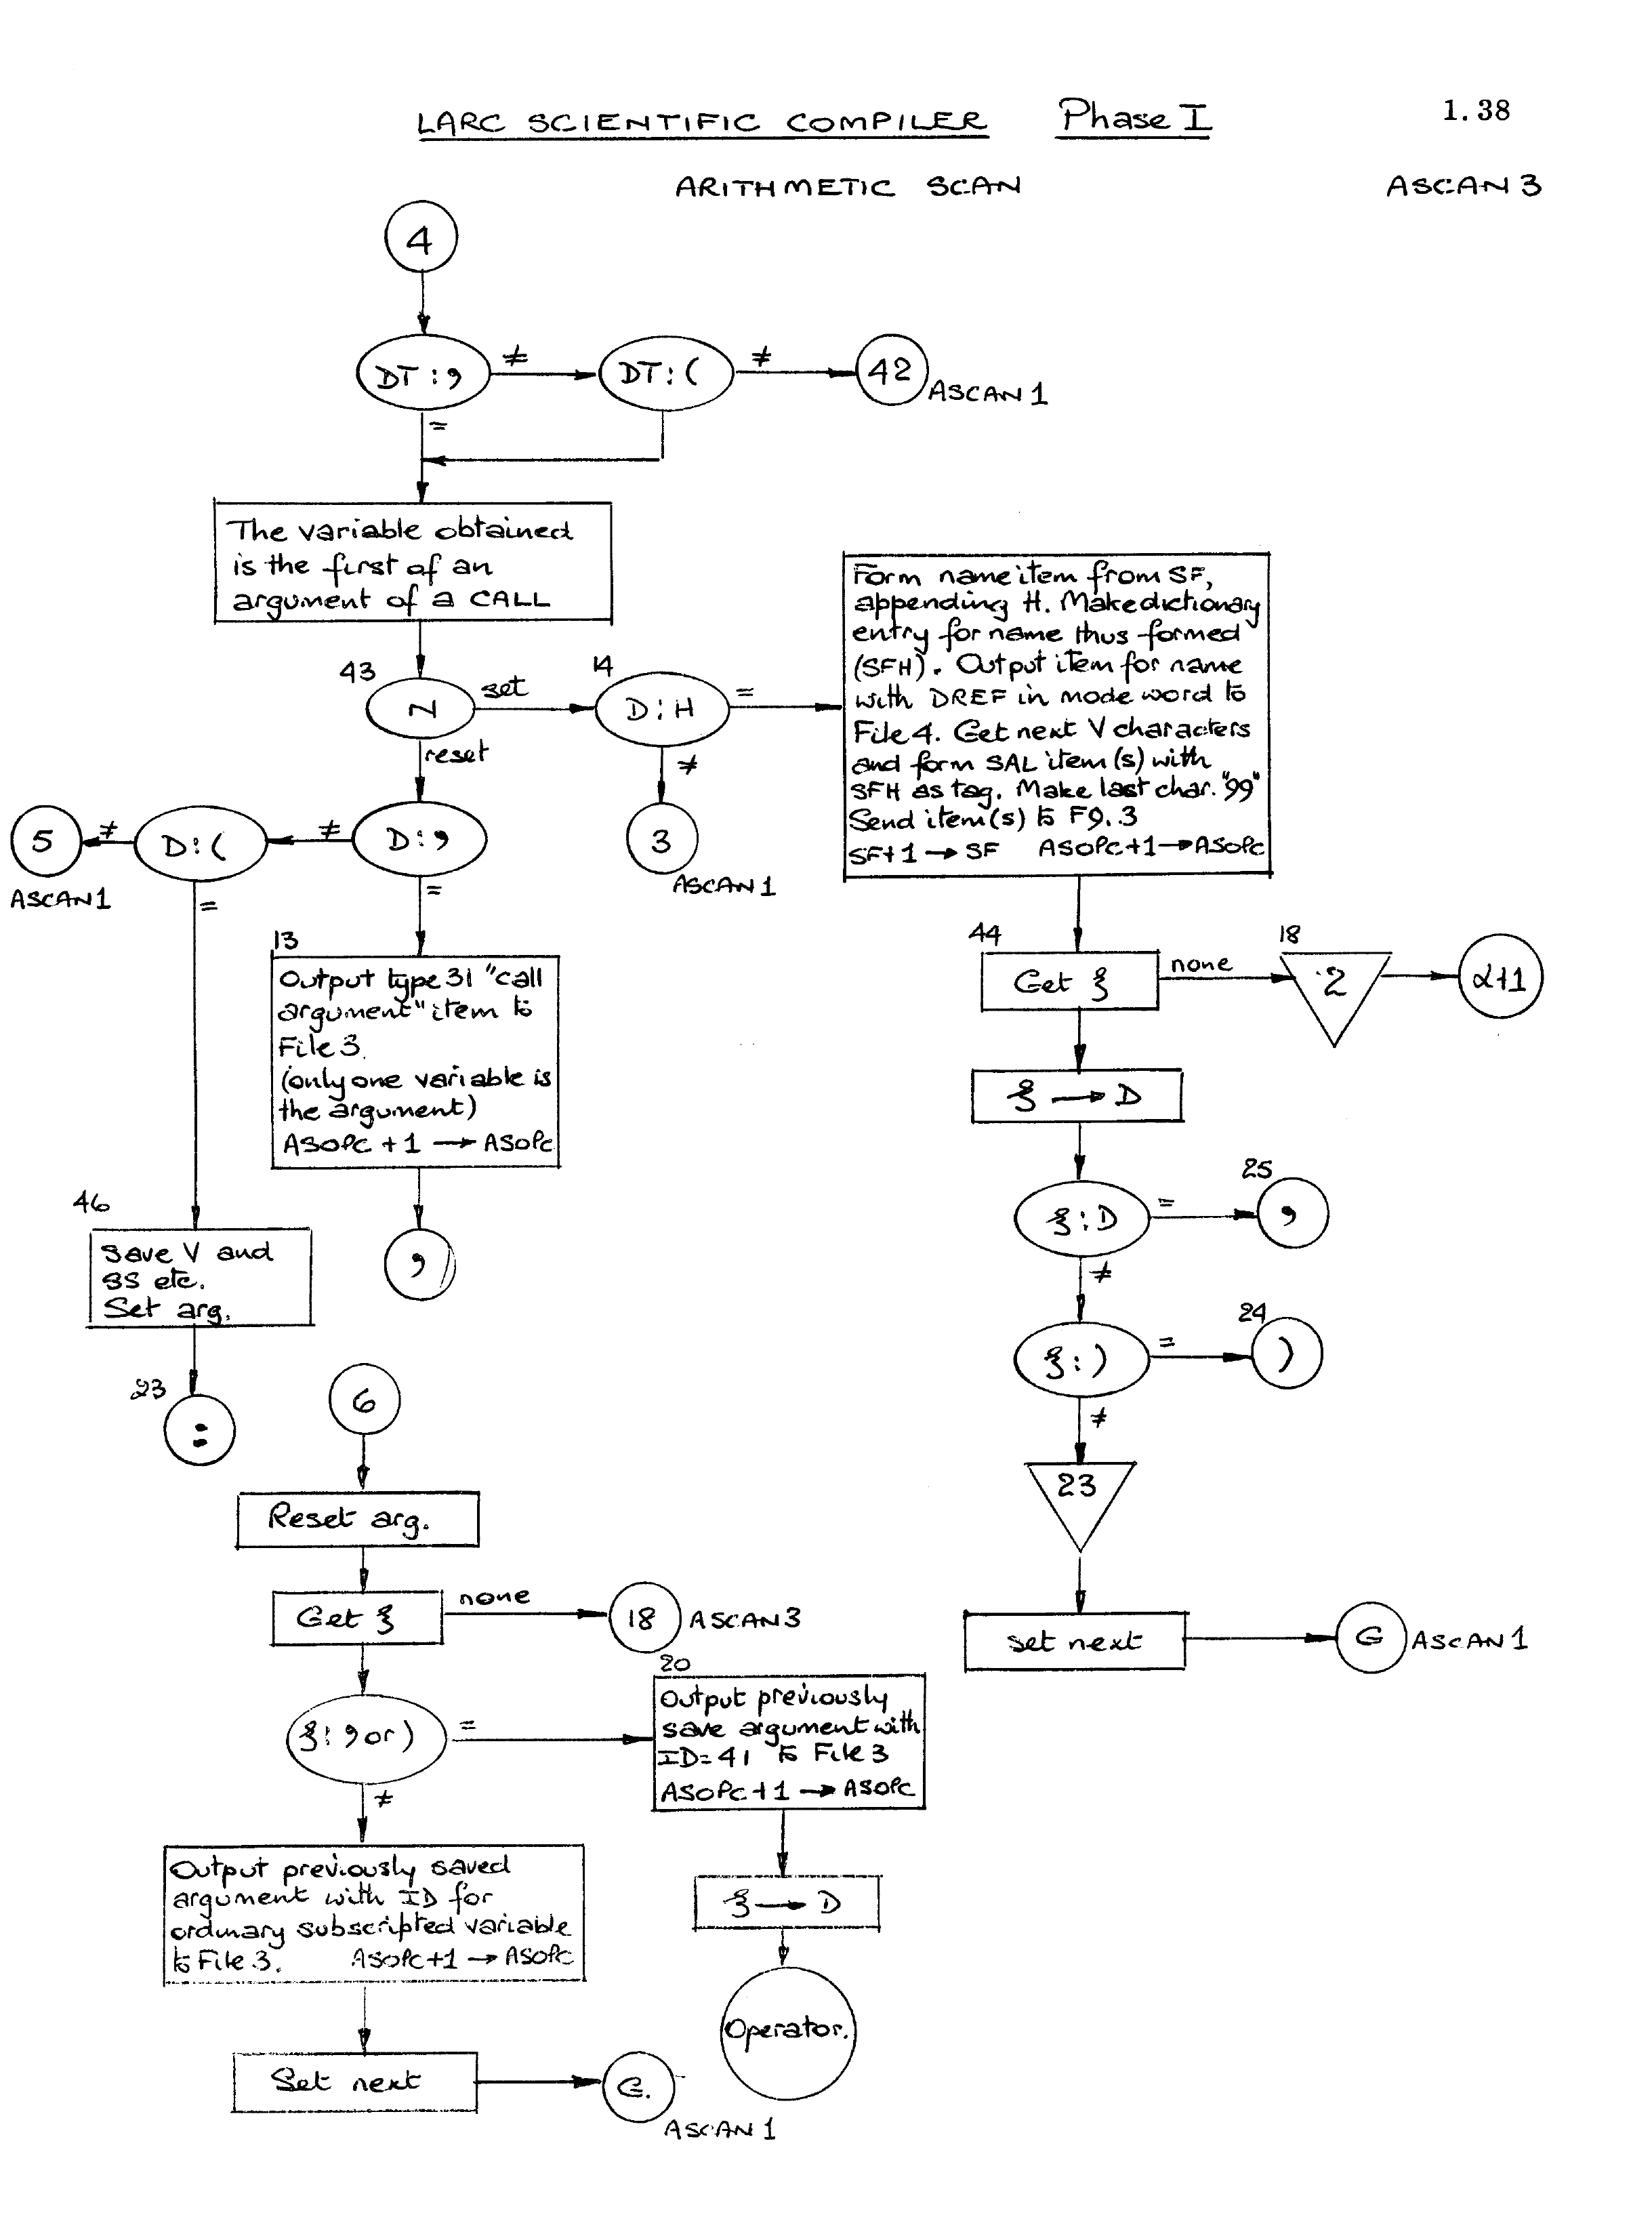 LARC SCIENTIFIC COMPILER Phase I 1.38
ARITHMETIC SCAN ASCAN 3
4
DT : , ≠ DT : ( ≠ 42 ASCAN 1
=
The variable obtained
is the first of an
argument of a CALL
43 N set 14 D : H =
reset ≠
3
ASCAN 1
Form name item from SF,
appending H. Make dictionary
entry for name thus formed
(SFH). Output item for name
with DREF in mode word to
File 4. Get next V characters
and form SAL item(s) with
SFH as tag. Make last char. "99"
Send item(s) to F9.3
SF+1 → SF ASOPC+1 → ASOPC
5 ≠ D : ( ≠ D : ,
ASCAN 1 = =
13
Output type 31 "call
argument" item to
File 3.
(only one variable is
the argument)
ASOPC + 1 → ASOPC
,
46
Save V and
SS etc.
Set arg.
23
:
44
Get ξ none 18 2 α+1
ξ → D
ξ : D = 25 ,
≠
ξ : ) = 24 )
≠
23
set next G ASCAN 1
6
Reset arg.
Get ξ none 18 ASCAN 3
ξ : , or ) =
≠
20
Output previously
save argument with
ID=41 to File 3
ASOPC+1 → ASOPC
ξ → D
Operator.
Output previously saved
argument with ID for
ordinary subscripted variable
to File 3. ASOPC+1 → ASOPC
Set next G.
ASCAN 1